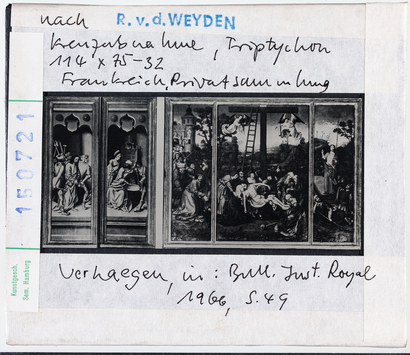 nach R.v.d.WEYDEN
Kreuzabnahme, Triptychon
114 x 75-32
Frankreich, Privatsammlung
150721
Kunstgesch.
Sem. Hamburg
Verhaegen, in: Bull. Inst. Royal
1966, S.49